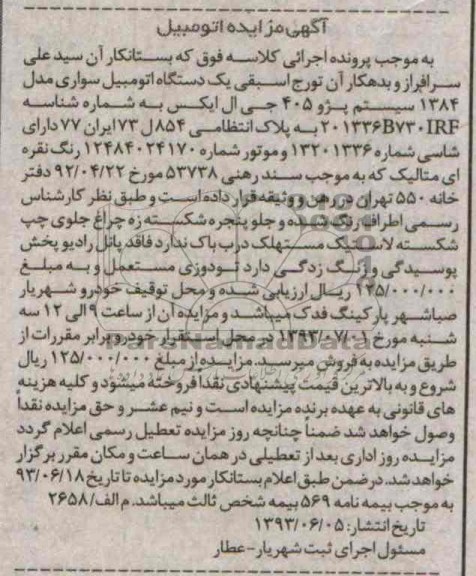 آگهی مزایده اتومبیل
به موجب پرونده اجرائی کلاسه فوق که بستانکار آن سید علی
سرافراز و بدهکار آن تورج اسبقی یک دستگاه اتومبیل سواری مدل
۱۳۸۴ سیستم پژو ۴۰۵ جی ال ایکس به شماره شناسه
IRF۷۳۰B۲۰۱۳۳۶ به پلاک انتظامی ۸۵۴ل ۷۳ ایران ۷۷ دارای
شاسی شماره ۱۳۲۰۱۳۳۶ و موتور شماره ۱۲۴۸۴۰۲۴۱۷۰ رنگ نقره
ای متالیک که به موجب سند رهنی ۵۳۷۳۸ مورخ ۹۲/۰۴/۲۲ دفتر
خانه ۵۵۰ تهران در رهن و وثیقه قرار داده است و طبق نظر کارشناس
رسمی اطراف رنگ شده و جلو پنجره شکسته زه چراغ جلوی چپ
شکسته لاستیک مستهلک درب باک ندارد فاقد پانل رادیو پخش
پوسیدگی و زنگ زدگی دارد تودوزی مستعمل و به مبلغ
۱۲۵/۰۰۰/۰۰۰ ریال ارزیابی شده و محل توقیف خودرو شهریار
صباشهر پارکینگ فدک میباشد و مزایده آن از ساعت ۹ الی ۱۲ سه
شنبه مورخ ۱۳۹۳/۰۷/۰۱ در محل استقرار خودرو برابر مقررات از
طریق مزایده به فروش میرسد. مزایده از مبلغ ۱۲۵/۰۰۰/۰۰۰ ریال
شروع و به بالاترین قیمت پیشنهادی نقدا فروخته میشود و کلیه هزینه
های قانونی به عهده برنده مزایده است و نیم عشر و حق مزایده نقداً
وصول خواهد شد ضمناً چنانچه روز مزایده تعطیل رسمی اعلام گردد
مزایده روز اداری بعد از تعطیلی در همان ساعت و مکان مقرر برگزار
خواهد شد. در ضمن طبق اعلام بستانکار مورد مزایده تا تاریخ ۹۳/۰۶/۱۸
به موجب بیمه نامه ۵۶۹ بیمه شخص ثالث میباشد. م الف/ ۲۶۵۸
تاریخ انتشار: ۱۳۹۳/۰۶/۰۵
مسئول اجرای ثبت شهریار-عطار